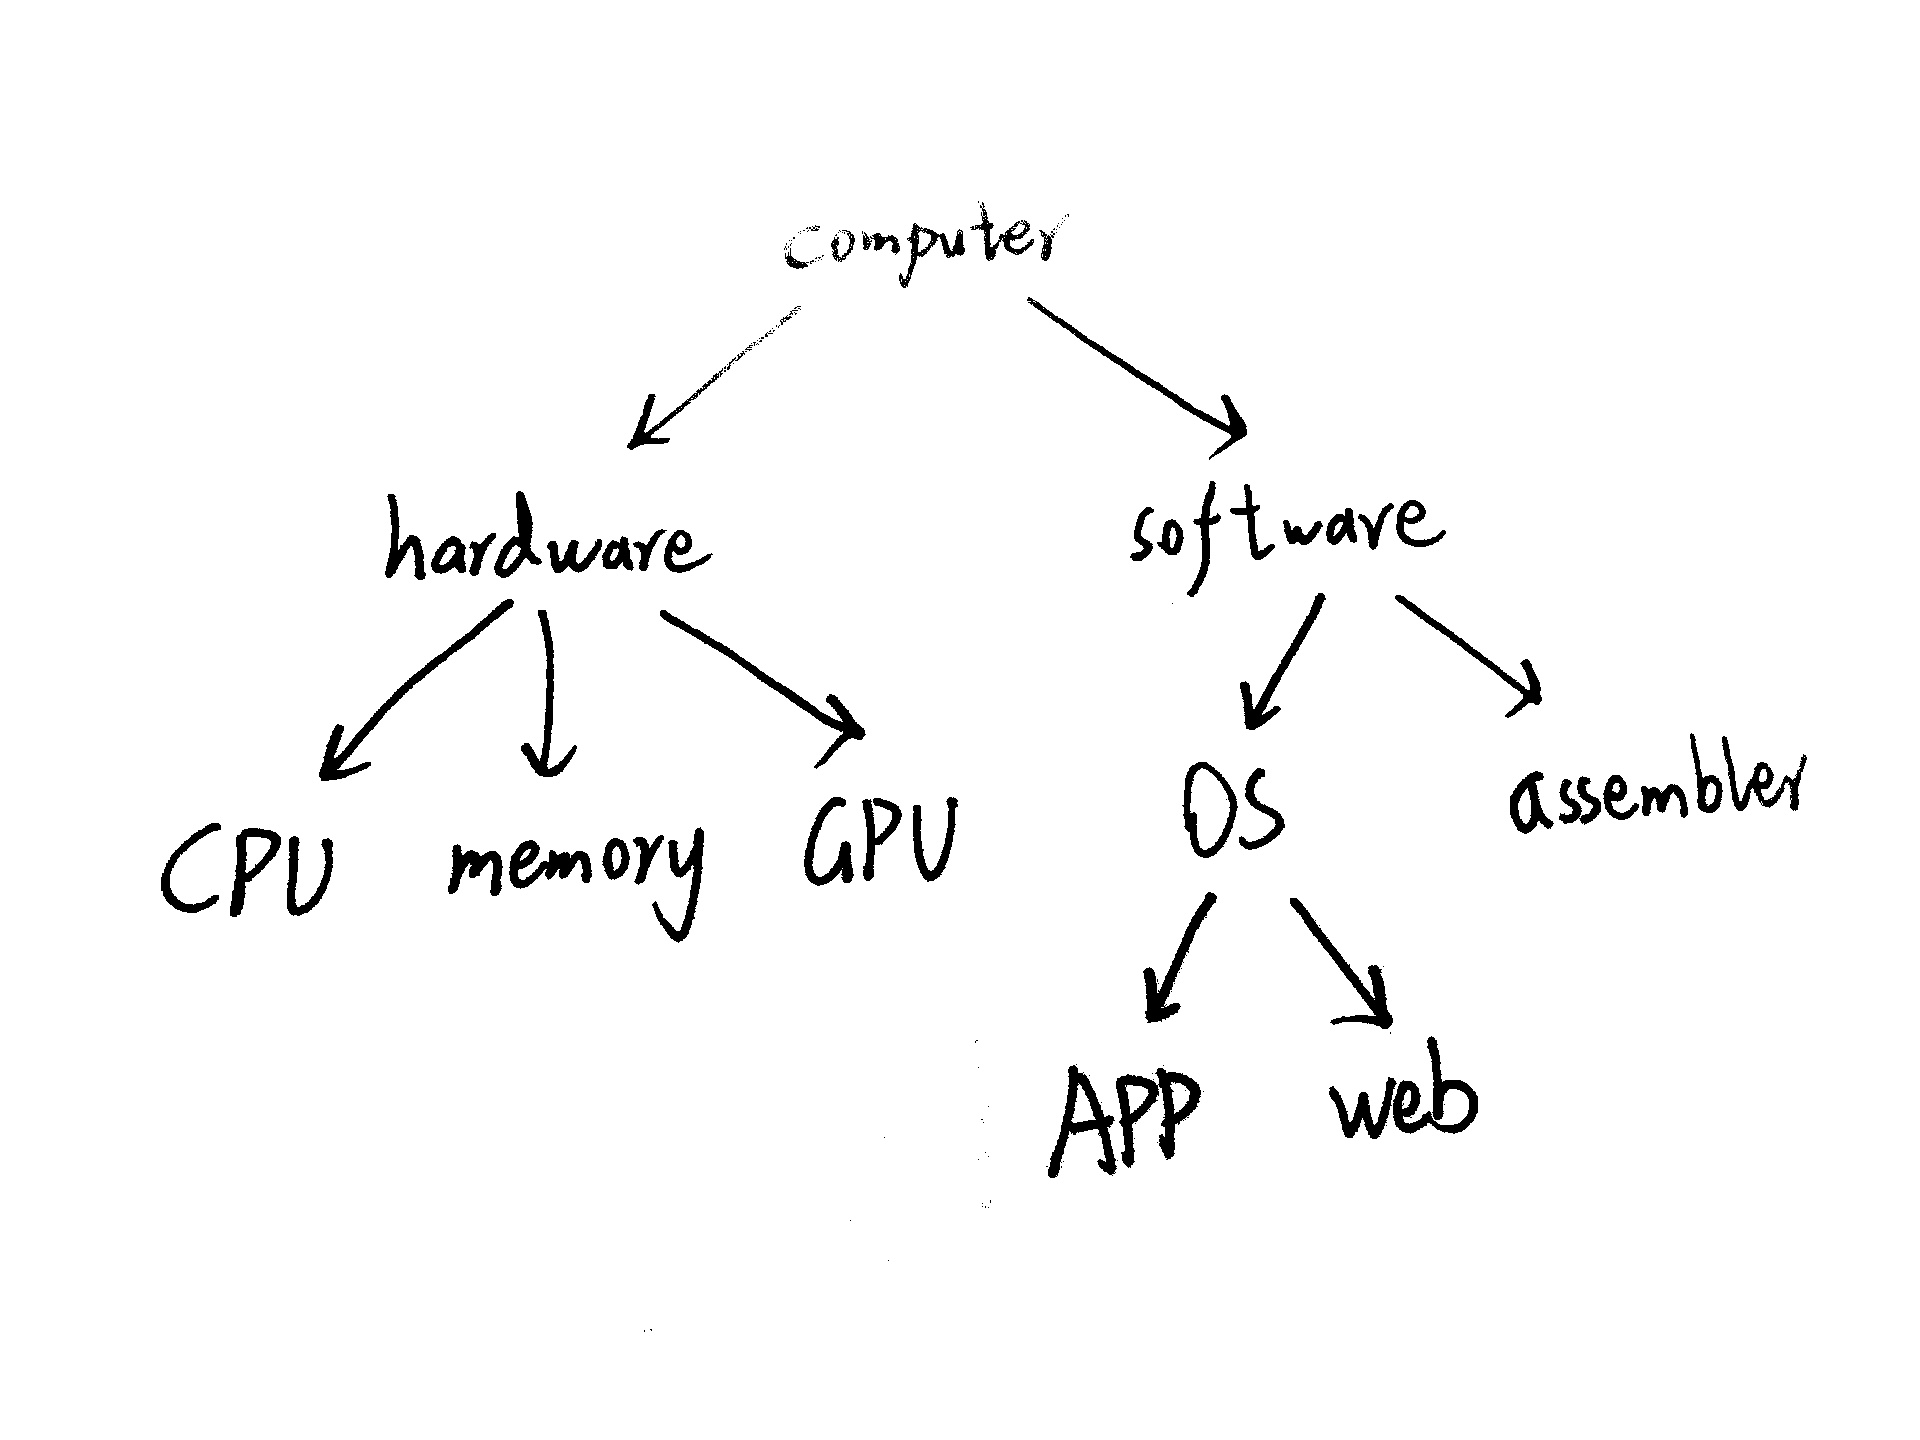 computer
hardware
software
CPU
memory
GPU
OS
assembler
APP
web